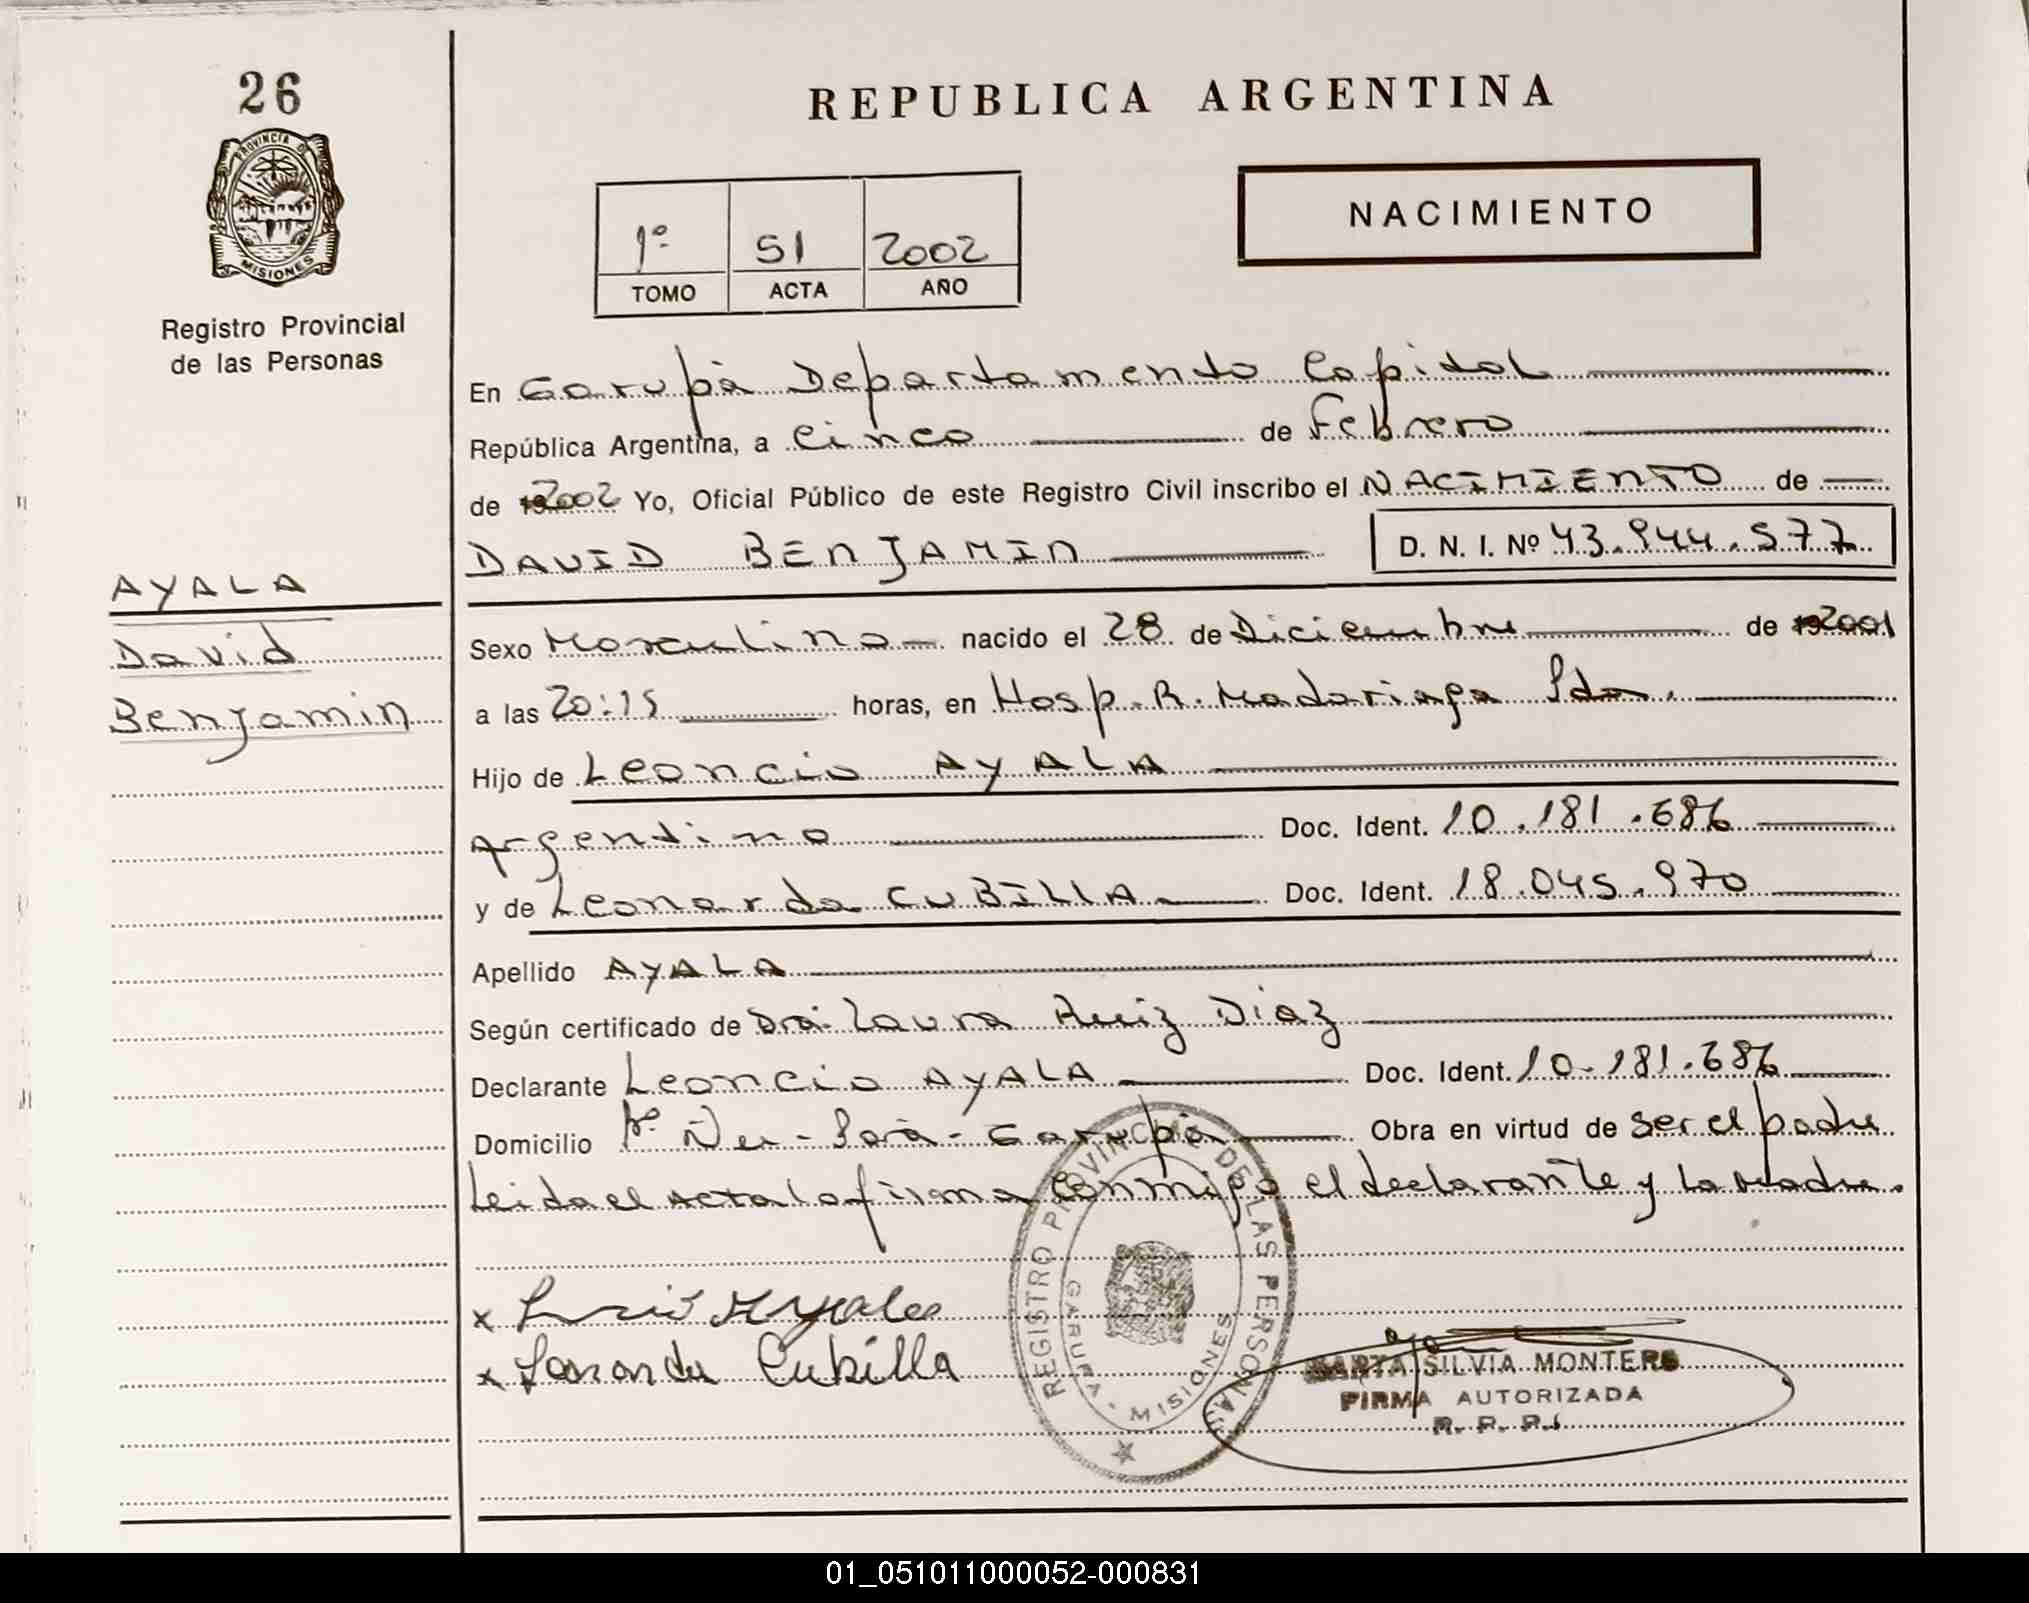 26
PROVINCIA D
MISIONES
Registro Provincial
de las Personas
AYALA
David
Benjamin
REPUBLICA ARGENTINA
1º 51 2002
TOMO ACTA AÑO
NACIMIENTO
En Garupà Departamento Capital
República Argentina, a cinco de Febrero
de 2002 Yo, Oficial Público de este Registro Civil inscribo el NACIMIENTO de
DAVID BENJAMIN D. N. I. Nº 43.944.577
Sexo Masculino nacido el 28 de Diciembre de 2001
a las 20:15 horas, en Hosp. R. Madariaga Pda.
Hijo de Leoncio AYALA
Argentino Doc. Ident. 10.181.686
y de Leonarda CUBILLA Doc. Ident. 18.045.970
Apellido AYALA
Según certificado de Dra. Laura Ruiz Diaz
Declarante Leoncio AYALA Doc. Ident. 10.181.686
Domicilio Bº Ñu - Porà - Garupà Obra en virtud de ser el padre
Leida el Acta la firma conmigo el declarante y la Madre.
x Ayala
x Leonarda Cubilla
REGISTRO PROVINCIAL DE LAS PERSONAS
GARUPA - MISIONES
MARTA SILVIA MONTERO
FIRMA AUTORIZADA
R. P. P.
01_051011000052-000831